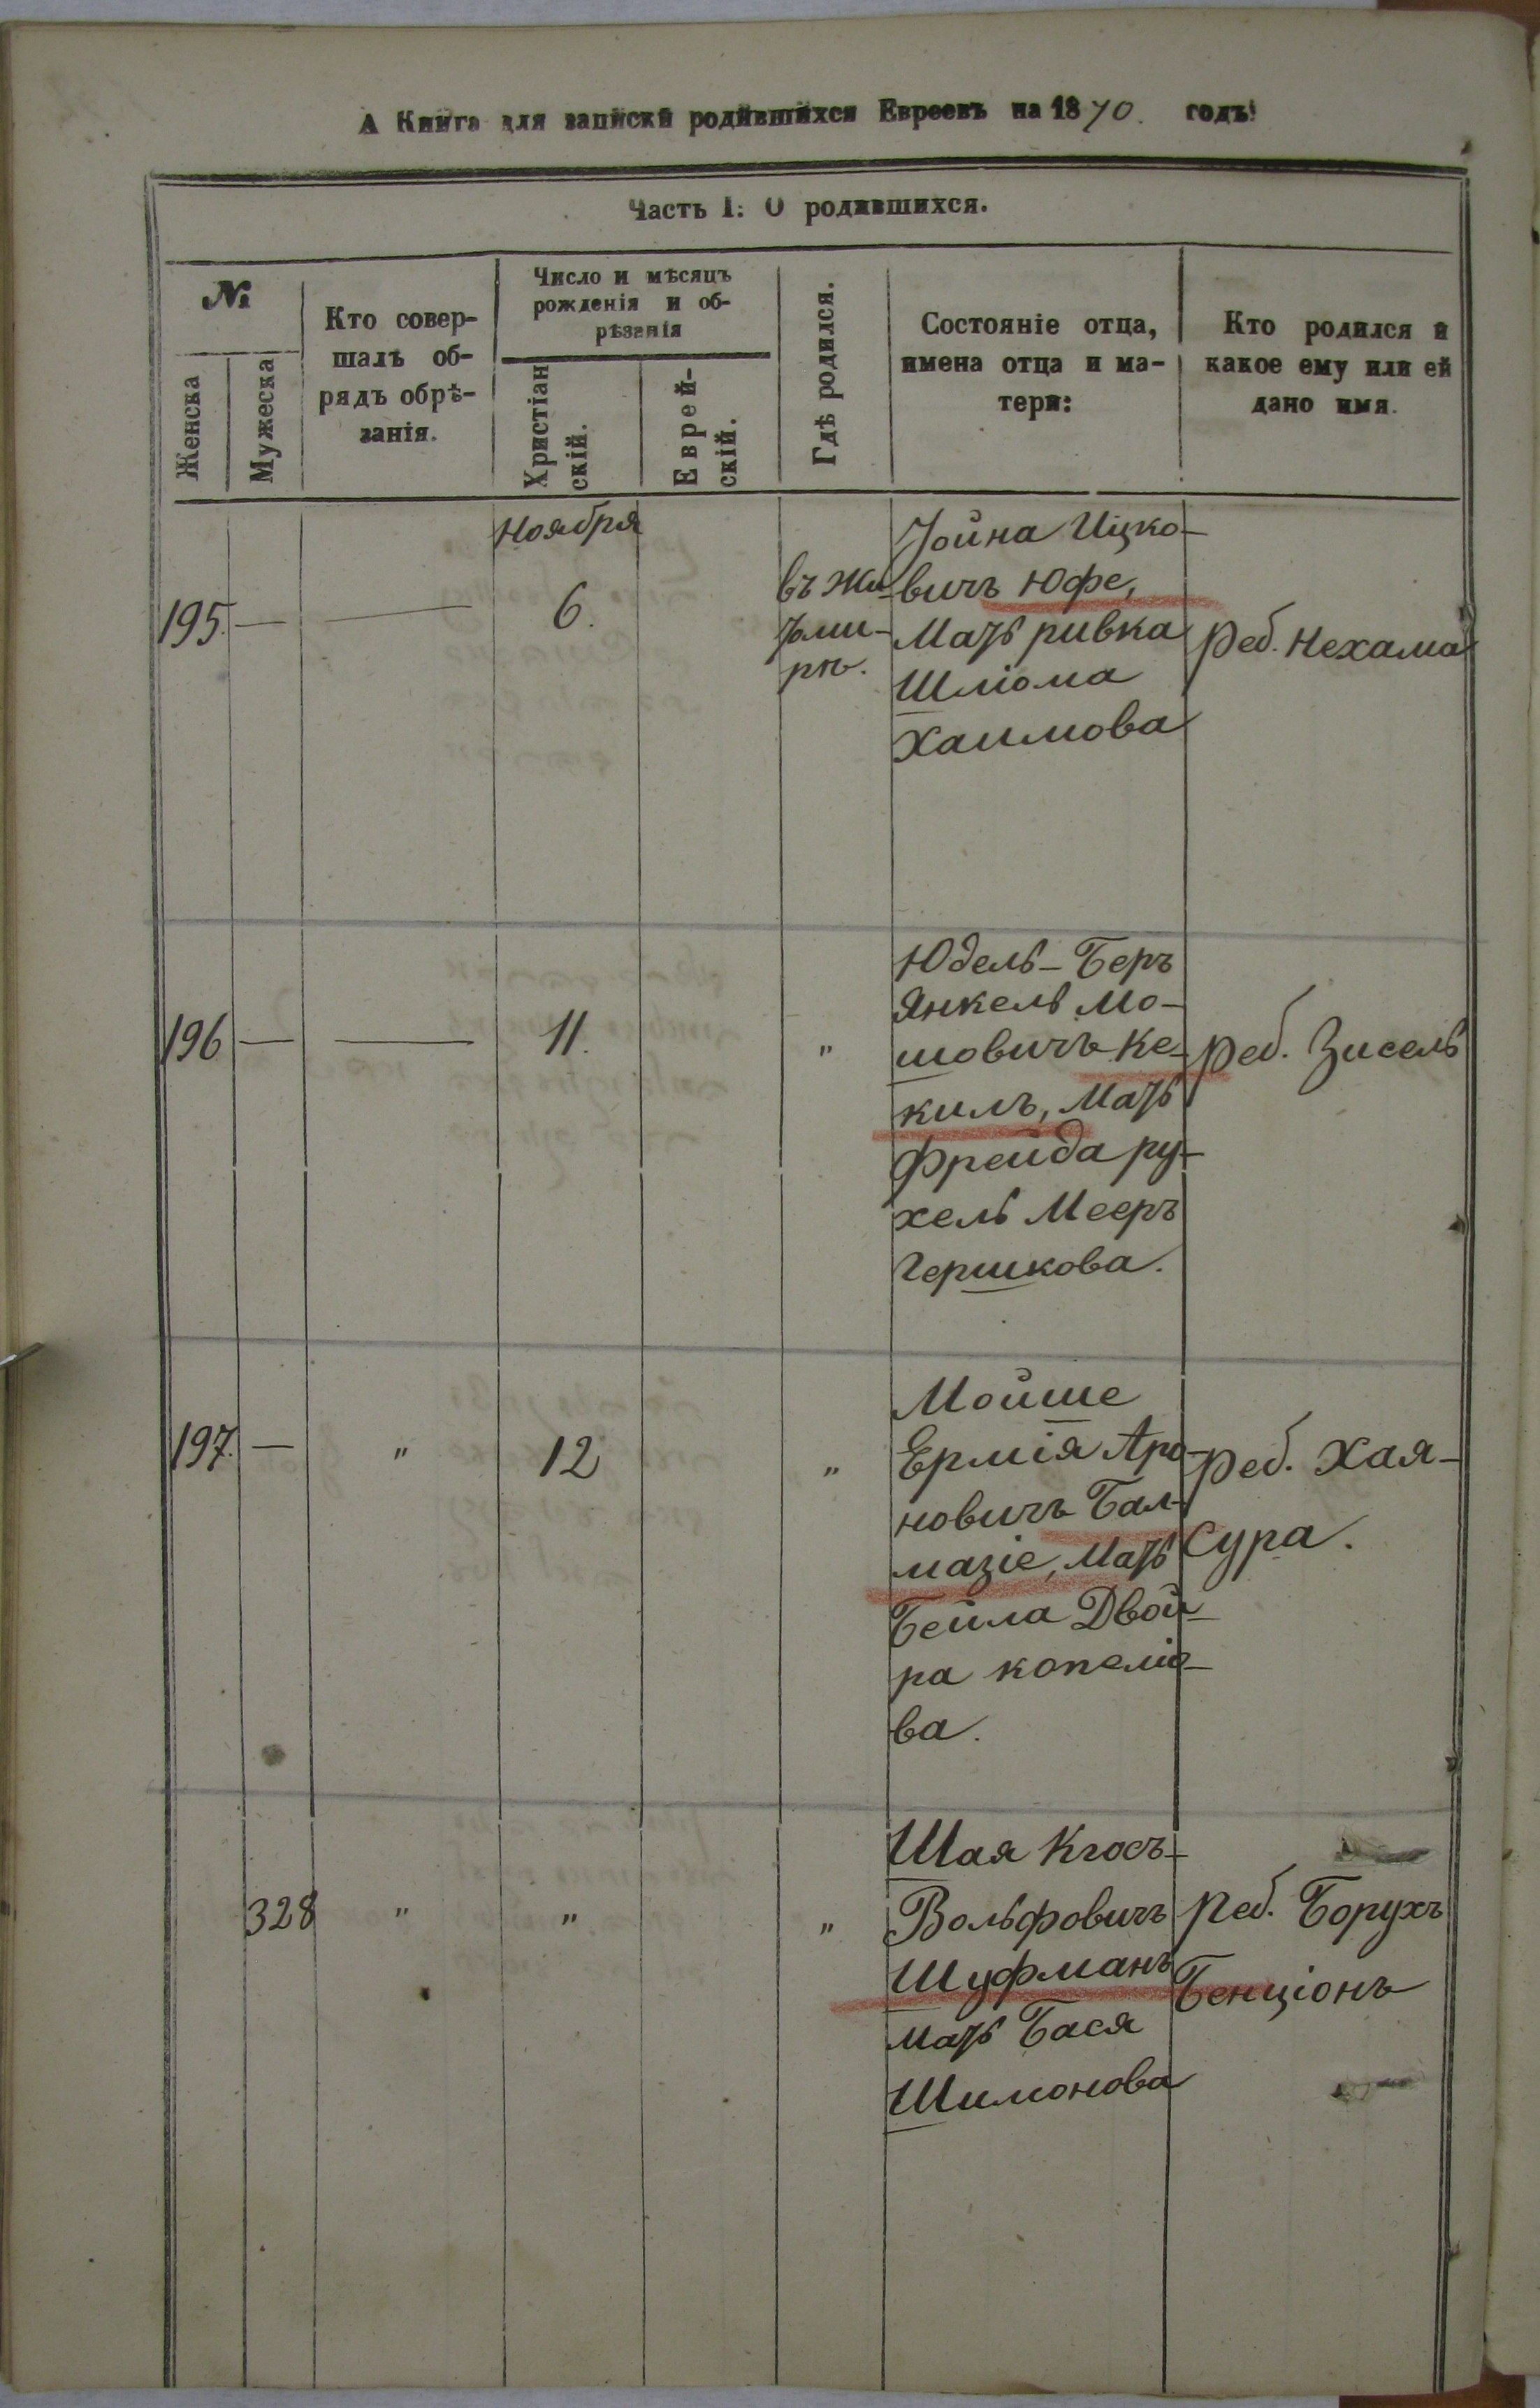 А Книга для записки родившихся Евреевъ на 1870. годъ:
Часть I: О родившихся.
№
Женска
Мужеска
Кто совер-
шалъ об-
рядъ обрѣ-
занія.
Число и мѣсяцъ
рожденія и об-
рѣзанія
Христіан
скій.
Еврей-
скій.
Гдѣ родился.
Состояніе отца,
имена отца и ма-
тери:
Кто родился и
какое ему или ей
дано имя.
Ноября
195. — —
6.
въ Жи-
томи-
рѣ.
Іойна Ицко-
вичъ Юфе,
Мать ривка
Шліома
Хаимова
Реб. Нехама
196 — —
11.
"
Юдель-Беръ
Янкель Мо-
шовичъ Ке-
килъ, Мать
Фрейда ру-
хель Мееръ
Гершкова.
Реб. Зисель
197. — "
12
"
Мойше
Ермія Аро-
новичъ Бал-
мазіе, Мать
Бейла Двой-
ра копеліо-
ва.
Реб. Хая-
Сура.
328 " " "
Шая
Вольфовичъ
Шуфманъ
Мать Бася
Шимонова
Реб. Борухъ
Бенціонъ